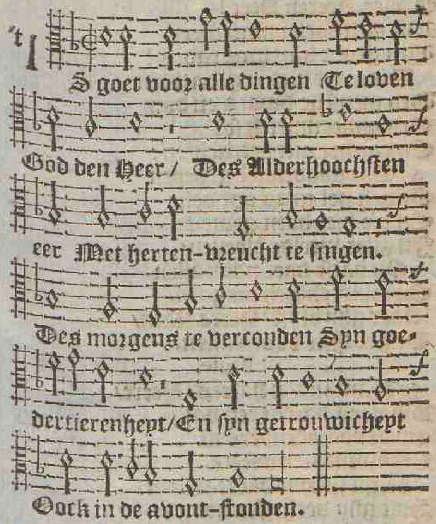 't I
S goet voor alle dingen Te loven
God den Heer / Des Alderhoochsten
eer Met herten-vreucht te singen.
Des morgens te verconden Syn goe-
dertierenheyt/En syn getrouwicheyt
Oock in de avont-stonden.